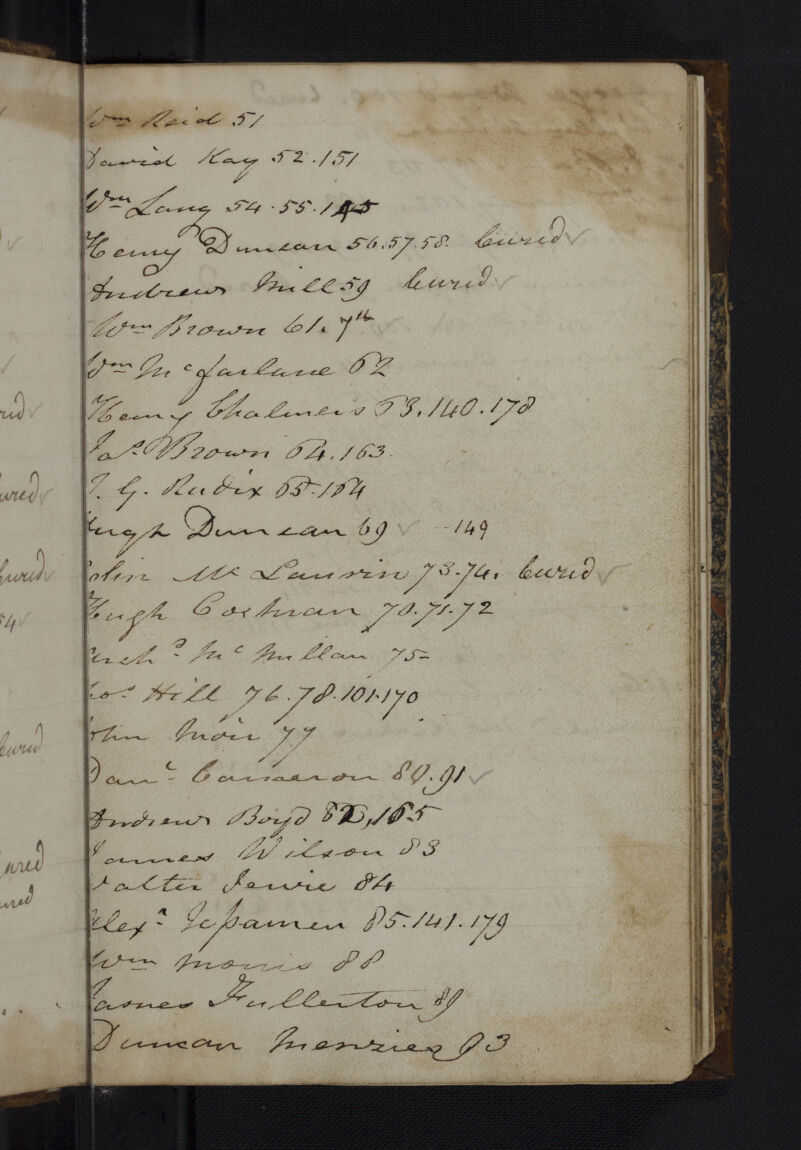 Wm Reid 51
David Kay 52.151
Wm Lang 54.55.145
Henry Duncan 56.57.58. Cured
Andrew Mill 59 Cured
Wm Brown 61. 7th
Wm Mcfarlane 62
Henry Chalmers 63.140.178
Jas. Brown 64.163.
J. G. Rudix 65.164
Hugh Duncan 69 149
Colin Mc Laurin 73.74. Cured
Hugh Cochran 70.71.72
Archd. Mc Millan 75
Hill 76.78.101.170
John Moir 77
Danl. Cameron 80.91
Andrew Boyd 82,165
James Wilson 83
Walter Jervie 84
Alexr. 85.141.179
Wm Morris 88
James Fullerton 89
Duncan Menzies 93